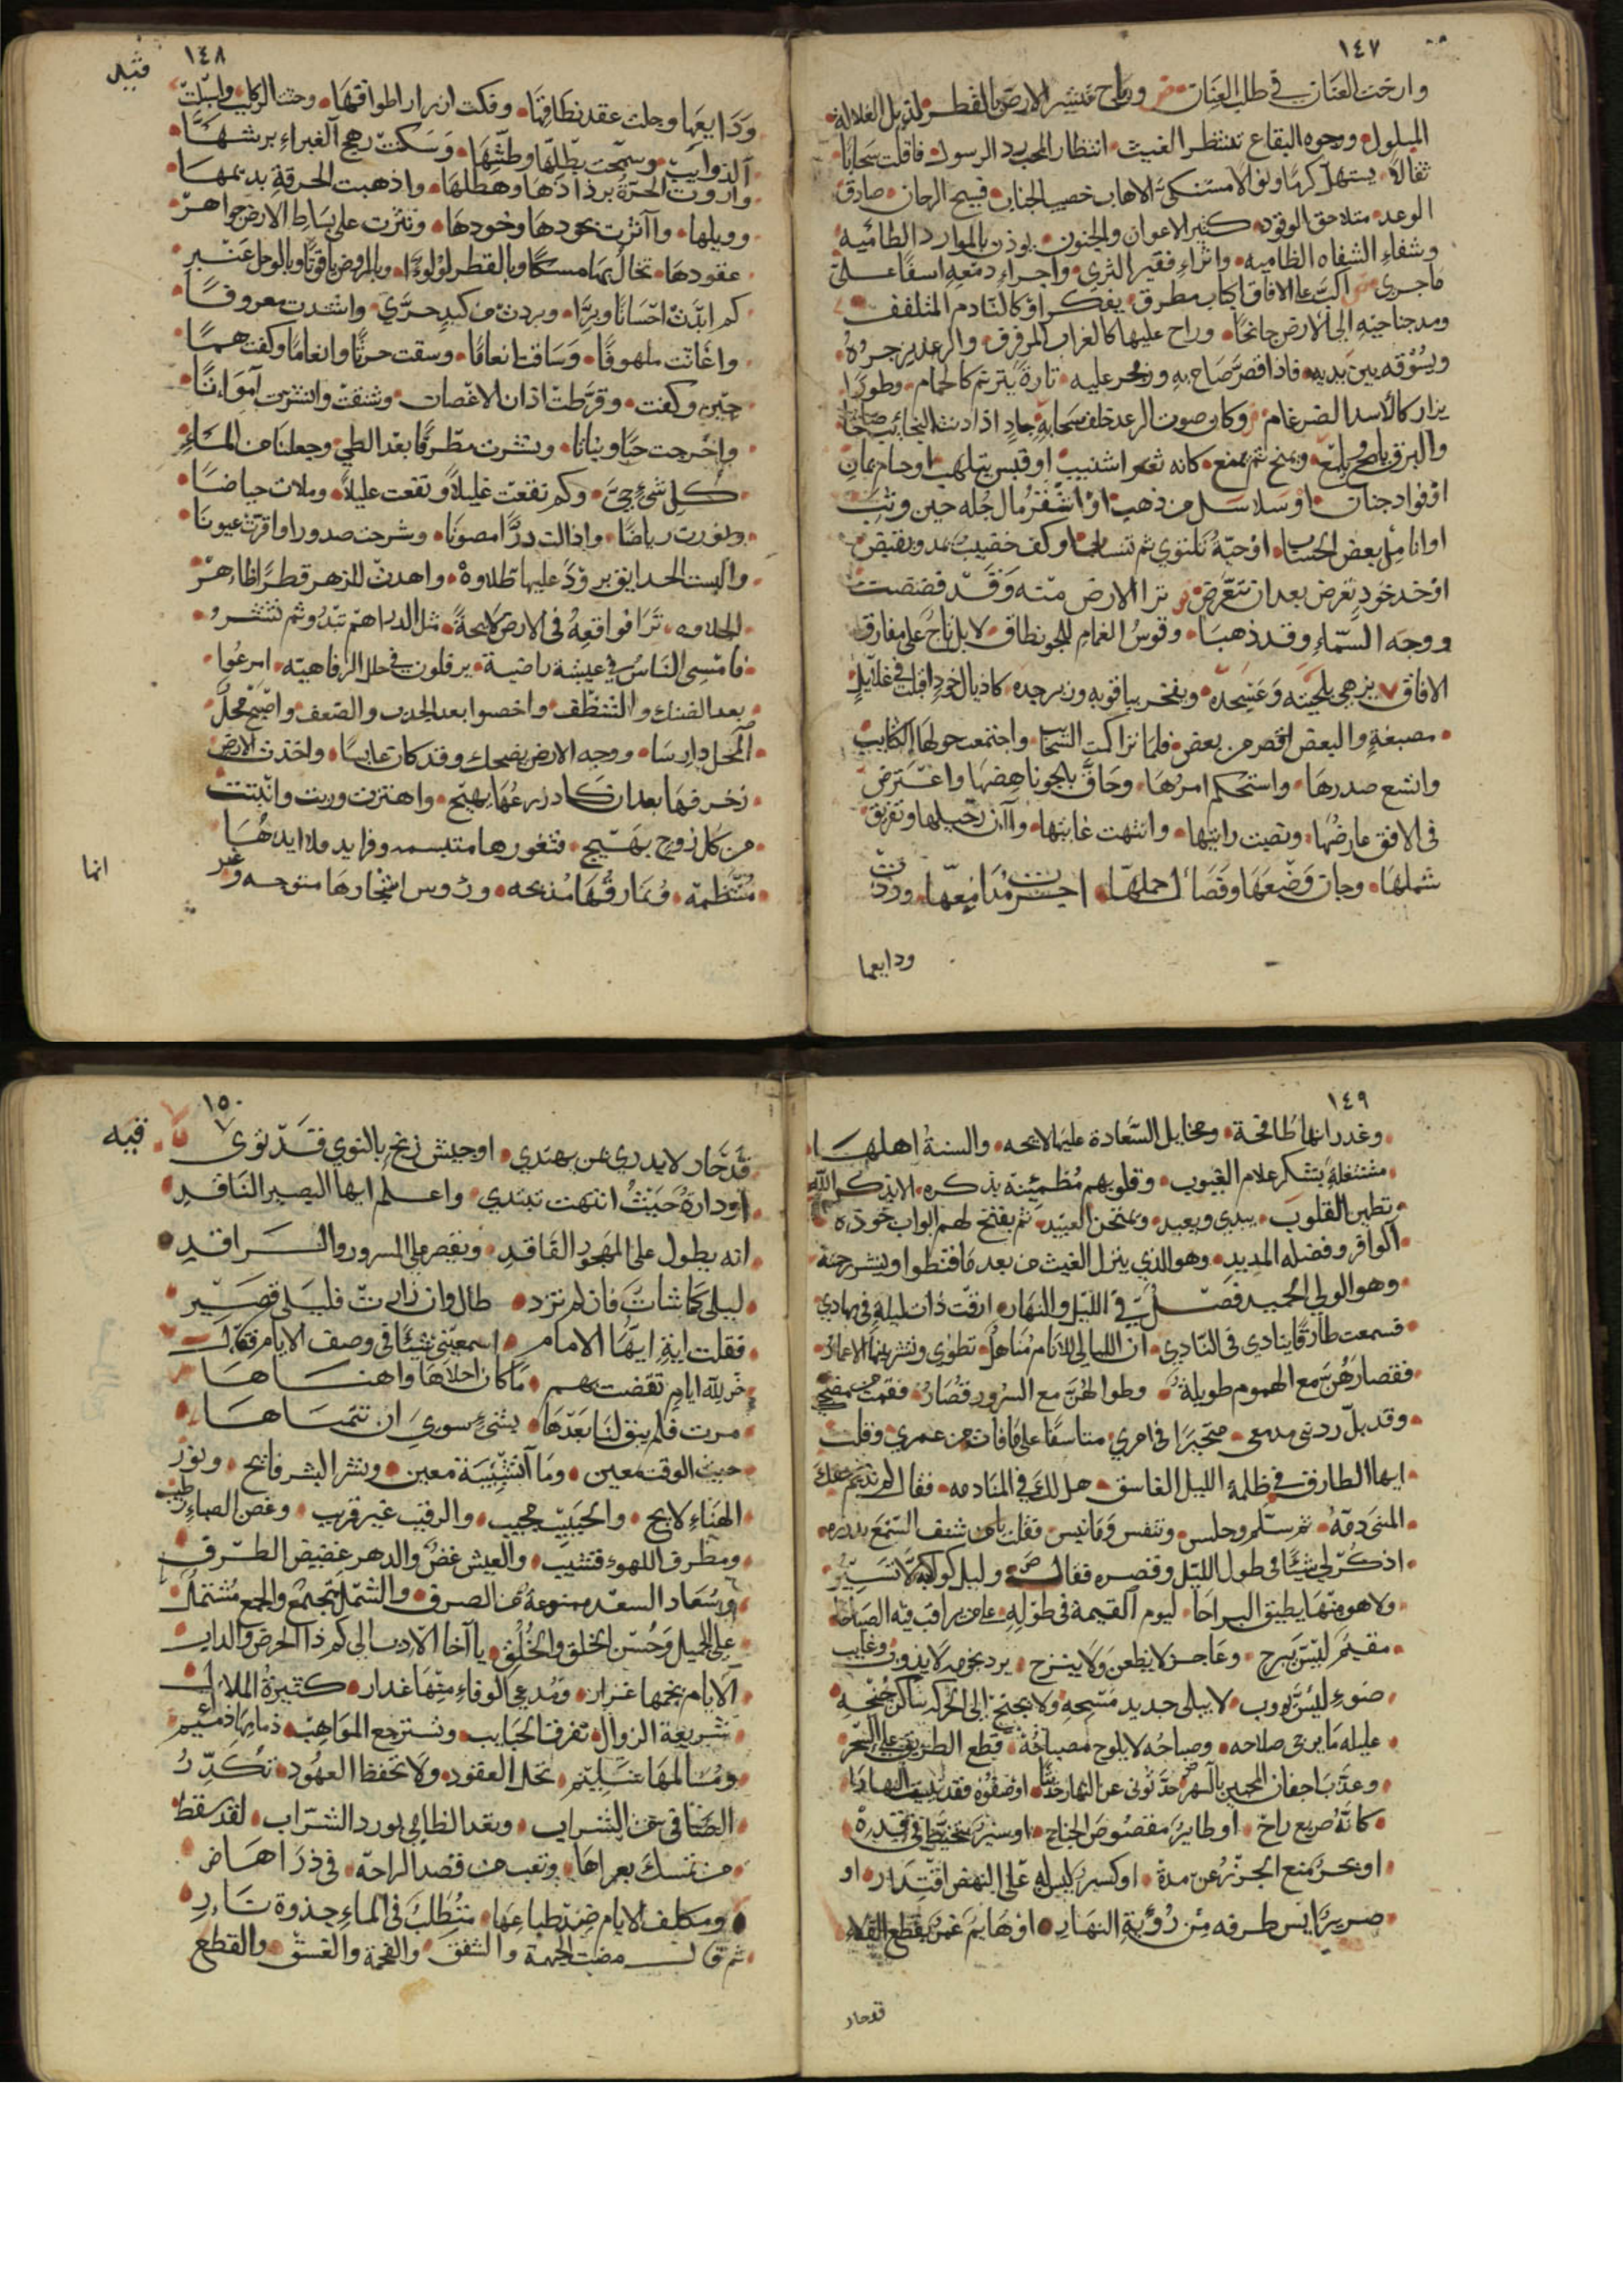 ١٤٧
وارخت العنان في طلب العنان وراح ينشر الارض بالقطر
المبلول ووجوه البقاع تنتظر الغيث انتظار المحب رد الرسول فاقلت سحابا
ثقالا يستهل كرما الاهاب خصيب الجناب فسيح الرحاب صادق
الوعد متلاحق الوفود كثير الاعوان والجنود يوذن بالموارد الطامية
وشفاء الشفاه الظامية واثراء فقير الثرى واجراء دمعه اسفا على
ماجرى اكب على الافاق اكباب مطرق يفكر او كالنادم المتلهف
ومد جناحيه الى الارض جانحا وراح عليها كالغراب المرفرف والرعد يزجره
ويسوقه بين يديه فاذا قصر صاح به وزمجر عليه تارة يترنم كالحمام وطورا
يزار كالاسد الضرغام وكان صوت الرعد خلف سحابه حاد اذا ونت النجائب صاحا
والبرق يلمع ويمنح ثم يمنع كانه ثغر اشنب او قبس يتلهب او حسام يمان
او فواد جنان او سلاسل من ذهب او اشقر مال جله حين وثب
او انامل بعض الحساب او حية تلتوي ثم تنساب او كف خضيب يمد ويقبض
او خد خود تعرض بعد ان تتعرض ترا الارض منه وقد فضضت
ووجه السماء وقد ذهبا وقوس الغمام للجو نطاق لا بل تاج على مفارق
الافاق يزهي بلجينه وعسجده ويفخر بياقوته وزبرجده كاذيال خود اقبلت في غلائل
مصبغة والبعض اقصر من بعض فلما تراكمت السحاب واجتمعت حولها الكتايب
واتسع صدرها واستحكم امرها وحاق بالجو ناهضها واعترض
في الافق عارضها ونصبت رايتها وانتهت غايتها وآن رحيلها وتفرق
شملها وحان وضعها وفصال حملها اجرت مدامعها وردت
ودايعها
١٤٨
ودايعها وحلت عقد نطاقها وفكت ازرار اطواقها وحثت الركاب واسبلت
الذوايب وسمحت بطلها وطشها وسكنت رهج الغبراء برشها
واروت الحرة برذاذها وهطلها واذهبت الحرقة بديمها
ووبلها وآثرت بجودها وجودها ونثرت على بساط الارض جواهر
عقودها تخال بها مسكا وبالقطر لولوءا وبالروض ياقوتا وبالوحل عنبر
كم ابدت احسانا وبرا وبردت من كبد حرى واسدت معروفا
واغاثت ملهوفا وساقت انعاما وسقت حرثا وانعاما وكفت هما
حين وكفت وقرطت اذان الاغصان وشنفت وانشرت امواتا
واخرجت حبا ونباتا ونشرت مطرفا بعد الطي وجعلنا من الماء
كل شيء حي وكم نقعت غليلا ونفعت عليلا وملات حياضا
ونورت رياضا واذالت درا مصونا وشرحت صدورا واقرت عيونا
والبست الحدايق برودا عليها طلاوة واهدت للزهر قطرا ظاهر
الحلاوه ترا مواقعه في الارض لايحة مثل الدراهم تبدو ثم تنتثر
فامسى الناس في عيشة راضية يرفلون في حلل الرفاهيه امرعوا
بعد الضنك والتنظف واخصبوا بعد الجدب والضعف واصبح محل
المحل دارسا ووجه الارض يضحك وقد كان عابسا واخذت الارض
زخرفها بعد ان كاد زرعها يهيج واهتزت وربت وانبتت
من كل زوج بهيج فثغورها متبسمه وفرايد قلايدها
منتظمة ونمارقها مدبجه وروس اشجارها متوجه وغير
انما
١٤٩
وغدرانها طافحة ومخايل السعادة عليها لايحه والسنة اهلها
مشتغلة بشكر علام الغيوب وقلوبهم مطمئنة بذكره الا بذكر الله
تطمين القلوب يبدي ويعيد ويمتحن العبيد ثم يفتح لهم ابواب جوده
الوافر وفضله المديد وهو الذي ينزل الغيث من بعد ما قنطوا وينشر رحمته
وهو الولي الحميد فصل في الليل والنهار ارقت ذات ليلة في مهادي
فسمعت طارقا ينادي في النادي ان الليالي للانام مناهل تطوى وتنشر بينها الاعمار
فقصارهن مع الهموم طويلة وطوالهن مع السرور قصار فقمت من مضجعي
وقد بل ردني مدمعي متحيرا في امري متاسفا على ما فات من عمري وقلت
ايها الطارق في ظلمة الليل الغاسق هل لك في المنادمه فقال
ثم سلم وجلس وتنفس وما نبس فقلت يامن شنف السمع بدرره
اذكر لي شيئا في طول الليل وقصره فقال وليل كواكبه لا تسير
ولا هو منها يطيق البراحا ليوم القيمة في طوله على من يراقب فيه الصباحا
مقيم ليس يبرح وعاجز لا يظعن ولا ينزح برد نجومه لا يذوب وغايب
ضوءه ليس يووب لا يبلى جديد مسحه ولا يجنح الى الحركة ساكن جنحه
عليله ما يرجى صلاحه وصباحه لا يلوح مصباحه قطع الطريق على السحر
وعذب اجفان المحبين بالسهر حدثوني عن النهار حديثا او صفوه فقد نسيت النهارا
كانه صريع راح او طاير مقصوص الجناح او سير يتخبط في قيده
او بحر منع الجزر عن مده او كسير ليس له على النهض اقتدار او
ضرير ايس طرفه من رؤية النهار او هايم غمر يقطع الفلا
قد حار
١٥٠
قد حار لا يدري بمن يهتدي او جيش زنج بالنوى قد نوى
او دارة حيث انتهت تبتدي واعلم ايها البصير الناقد
انه يطول على المهجور الفاقد ويقصر على المسرور والراقد
ليلى كما شات فان لم تزر طال وان زارت فليلى قصير
فقلت ايه ايها الامام اسمعني شيئا في وصف الايام فقال
لله ايام تقضت بهم ما كان احلاها واهناها
مرت فلم يبق لنا بعدها شيء سوى ان نتمناها
حيث الوقت معين وما الشبيبة معين ونشر البشر فايح ونور
الهناء لايح والحبيب مجيب والرقيب غير قريب وغصن الصباء رطيب
ومطرف اللهو قشيب والعيش غض والدهر غضيض الطرف
وسعاد السعد ممنوعة من الصرف والشمل مجتمع والجمع مشتمل
على الجميل وحسن الخلق والخلق يا اخا الادب الى كم ذا الحرص والداب
الايام نجمها غرار ومدعي الوفاء منها غدار كثيرة الملال
سريعة الزوال تفرق الحبايب وتسترجع المواهب ذمامها ذميم
ومسالمها سليم تحلل العقود ولا تحفظ العهود تكدر
الصافي من الشراب وتعد الظامي بورد السراب لقد سقط
من تمسك بعراها وتعب من قصد الراحه في ذراها
ومكلف الايام ضد طباعها متطلب في الماء جذوة نار
ثم قال مضت الجهمة والشفق والفحمة والغسق والقطع
فيه